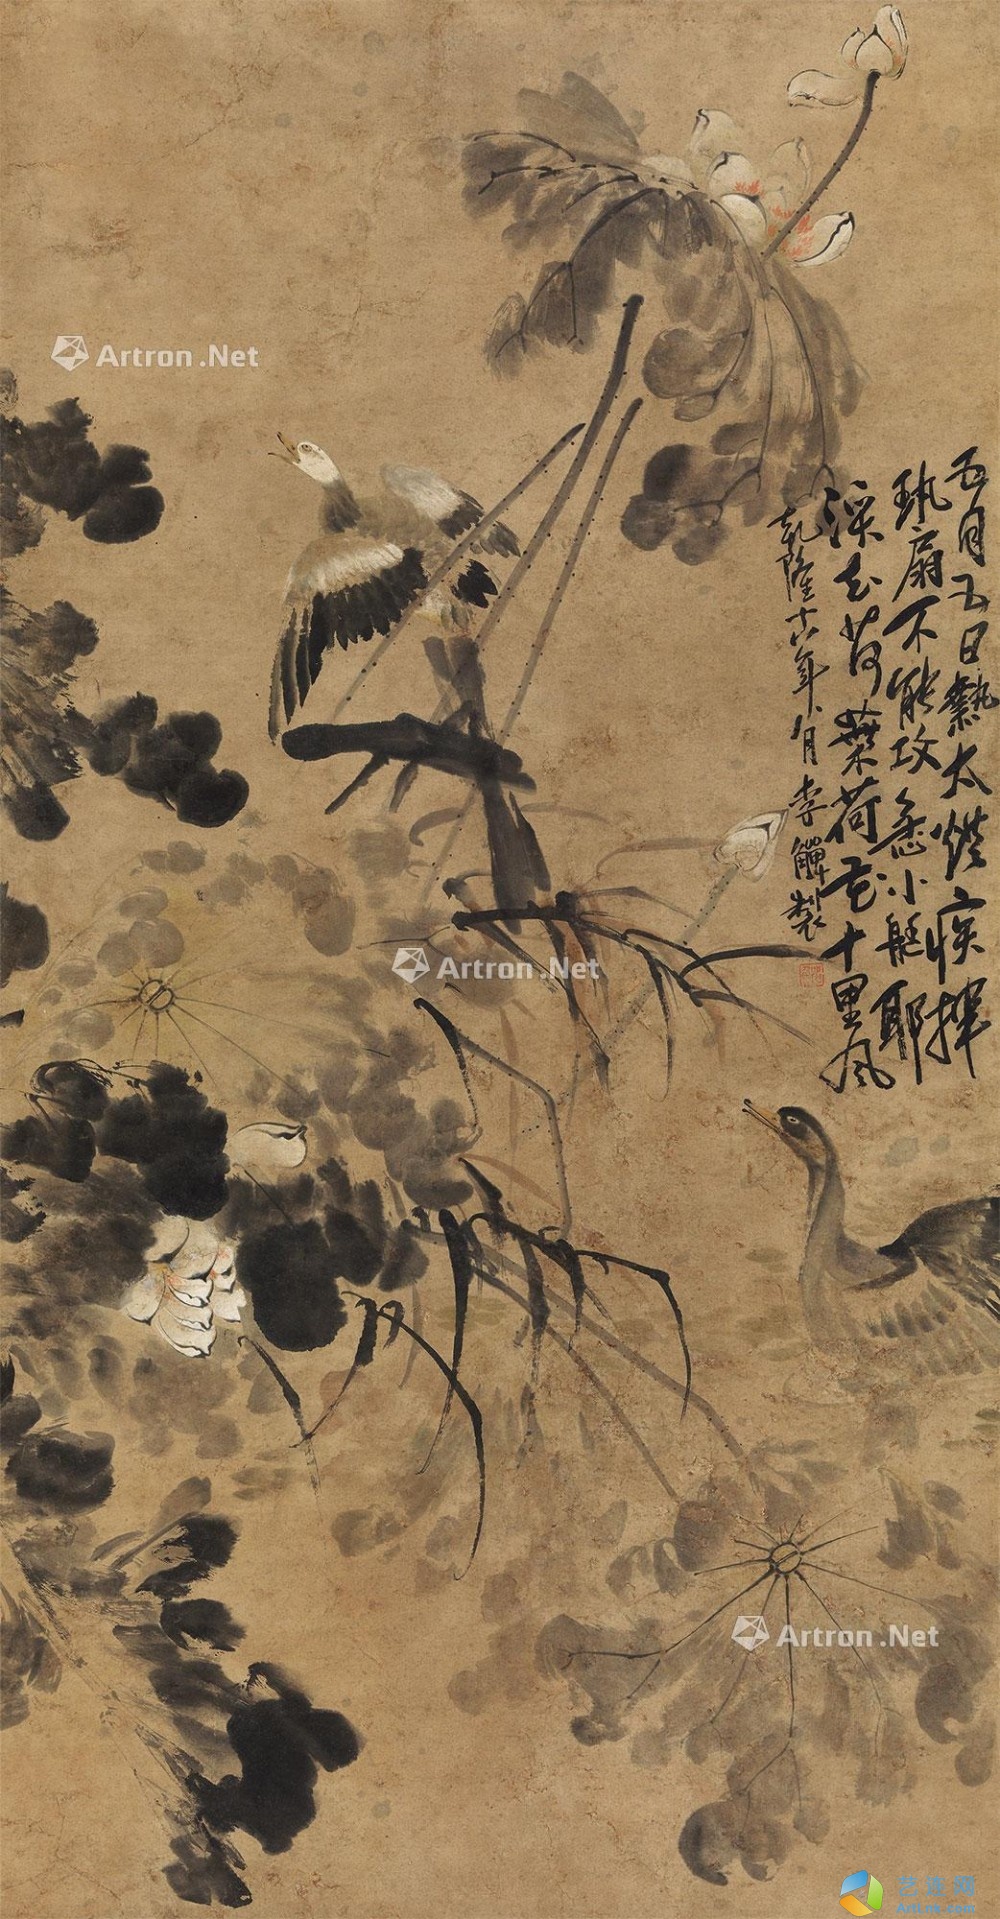 五月五日熱太烘疾揮
紈扇不能攻小艇耶
溪去荷葉荷花十里風
乾隆十六年八月李觶製
Artron.Net
Artron.Net
Artron.Net
艺连网